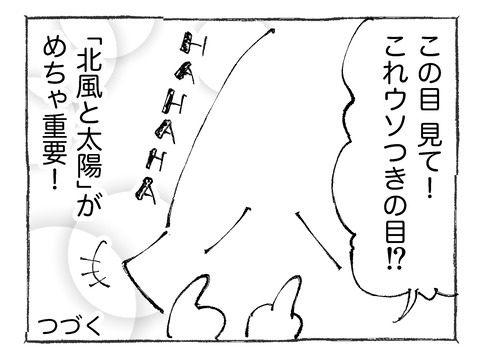 この目 見て!
これウソつきの目!?
HAHAHA
「北風と太陽」が
めちゃ重要!
つづく